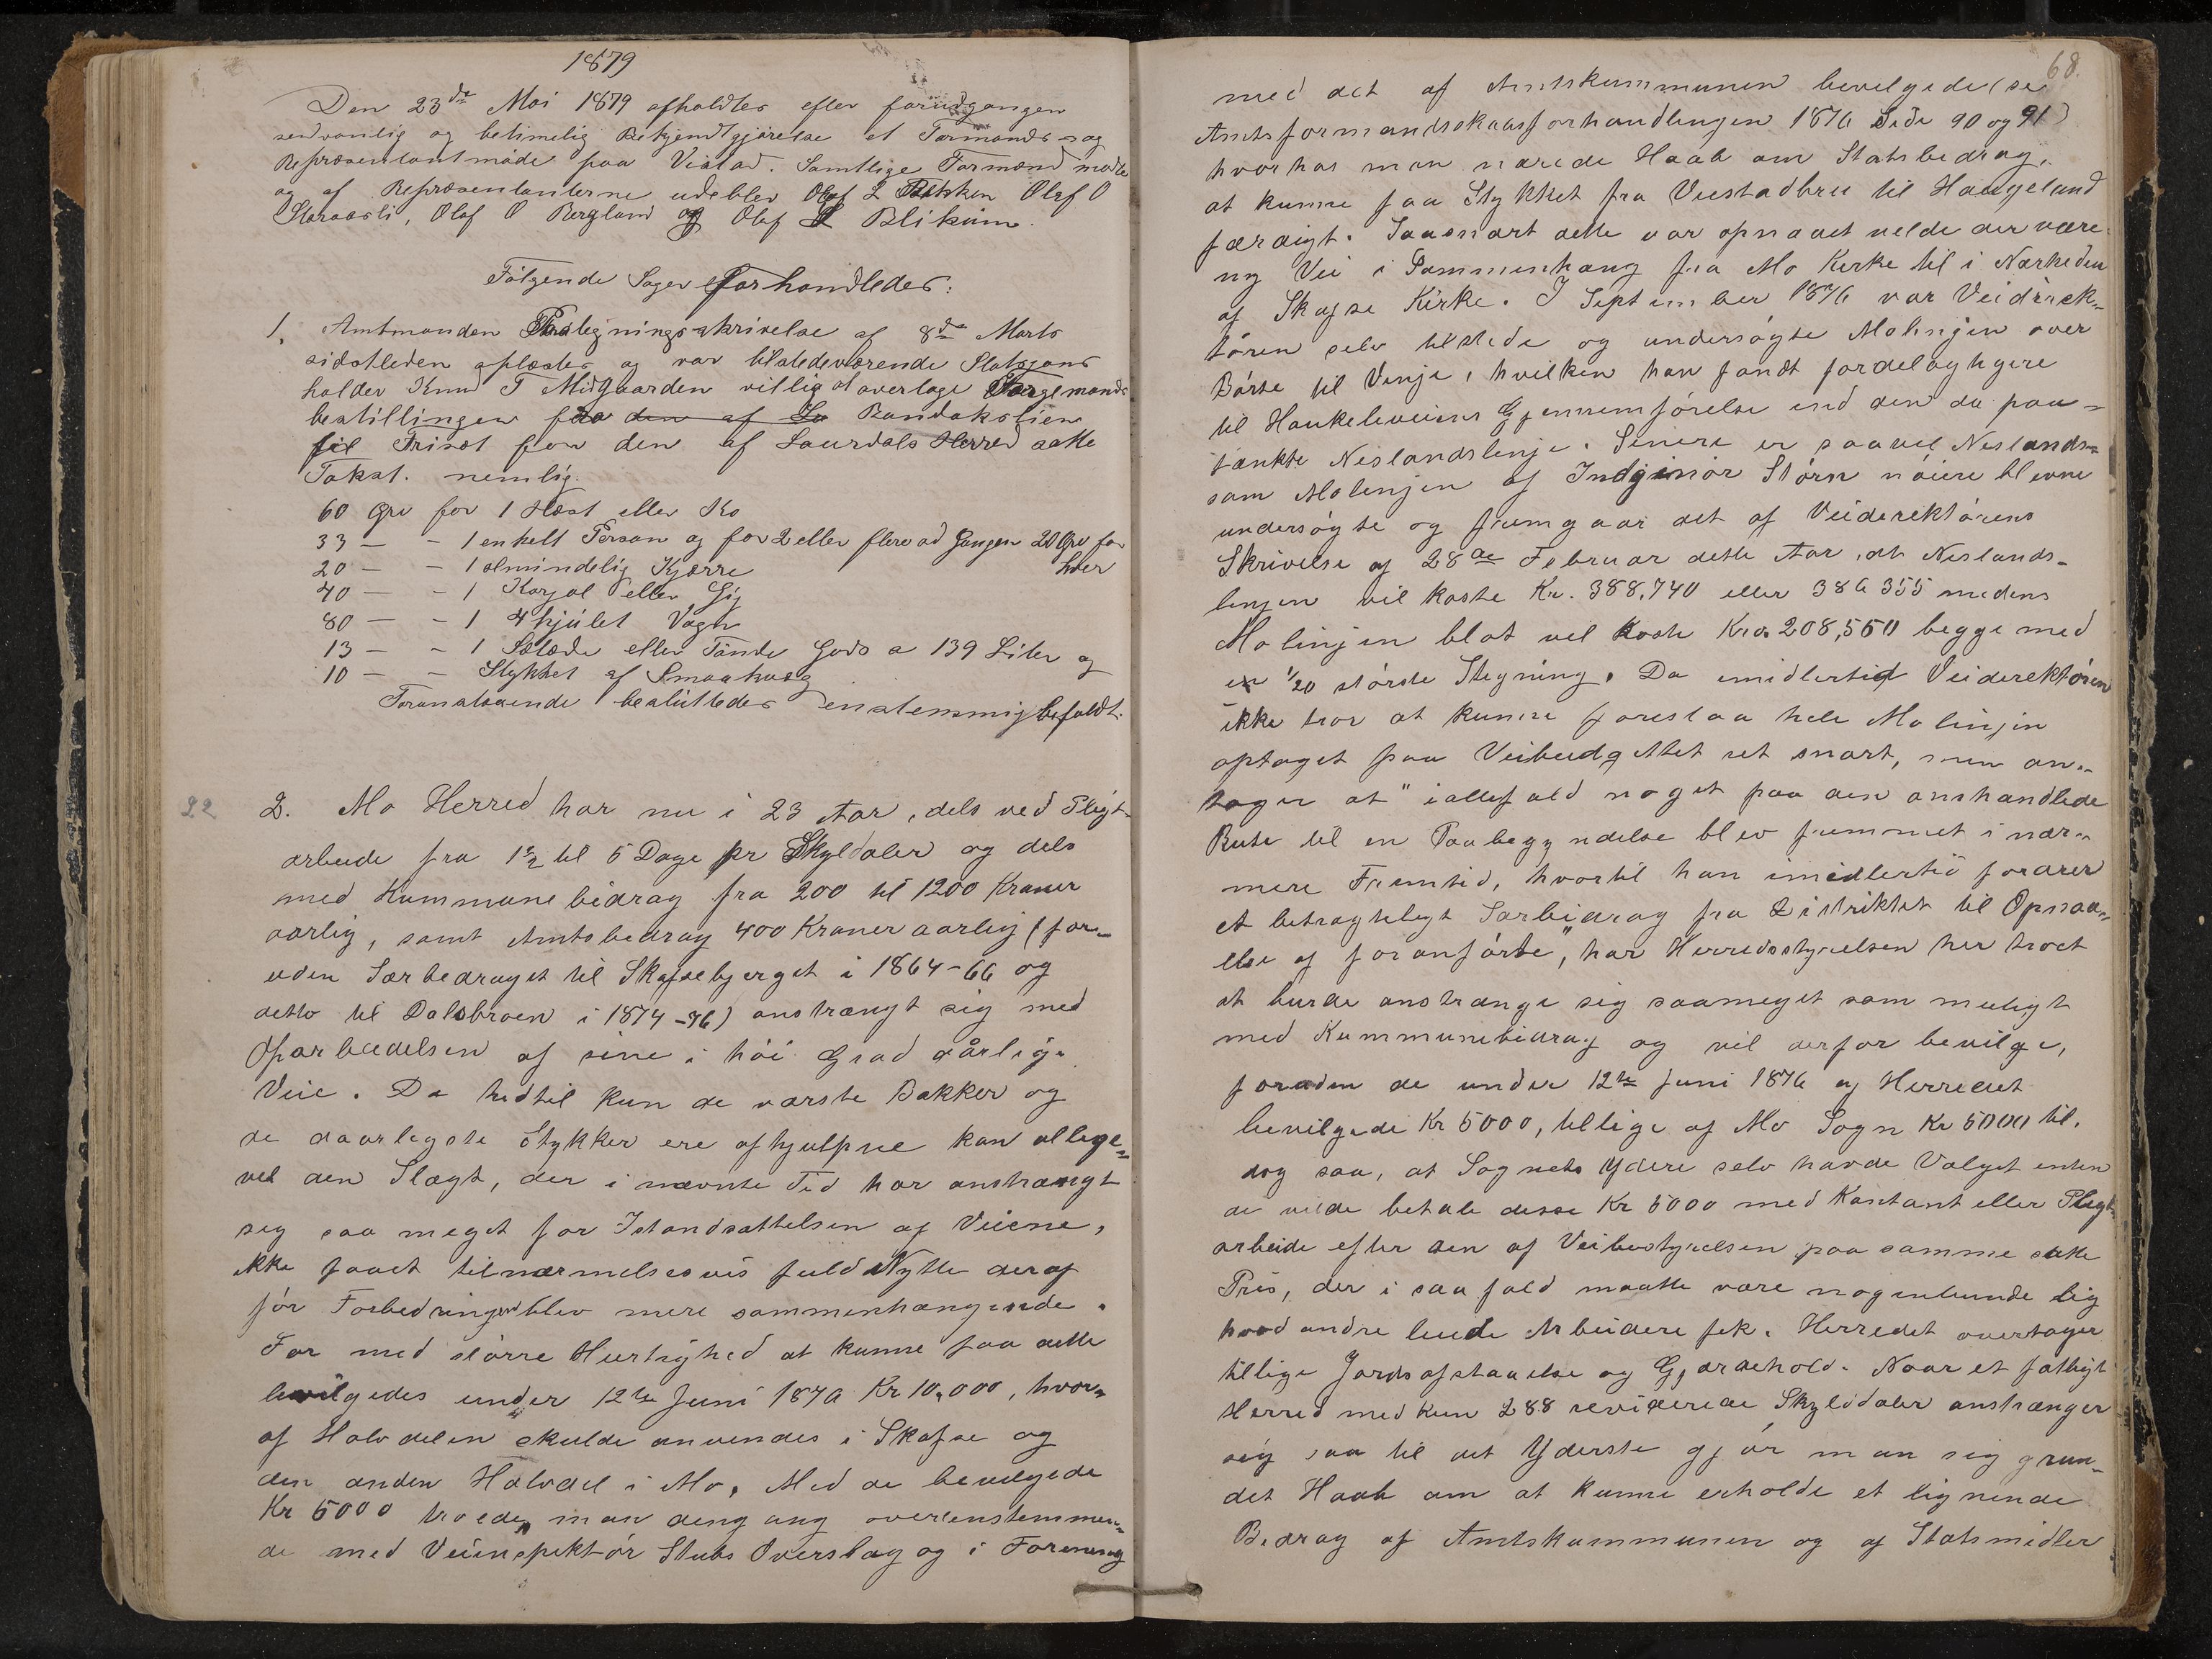 1879
Den 23de Mai 1879 afholdtes efter forudgangen
sedvanlig og betimelig Bekjendtgjørelse et Formands- og
Repræsentantmøde paa Vistad. Samtlige Formænd mødte
og af Repræsentanterne udeblev Olaf L Olaf O
Storaasli, Olaf O Bergland og Olaf Blikum.
Følgende Sager forhandledes:
1. Amtmanden skrivelse af 8de Marts
sidstleden oplæstes og var tilstedeværende Skatsjans
holder Knud T Midgaarden villig at overtage Færgemands
bestillingen fra den af La Bandakslien
til Triset for den af Laurdals Herred satte
Takst. nemlig.
60 Øre for 1 Hest eller Ko
33 — - 1 enkelt Person og for 2 eller flere ad Gangen 20 Øre for
hver
20 — - 1 almindelig Kjærre
40 — - 1 Karjol eller Gig
80 — - 1 4 hjulet Vogn
13 — - 1 Sælæde eller Tønde Gods a 139 Liter og
10 — - Stykket af Smaakvæg
Foranstaaende besluttedes enstemmig befaldt.
22
2. Mo Herred har nu i 23 Aar, dels ved Pligt-
arbeide fra 1 1/2 til 5 Dage pr Skyldaler og dels
med Kommunebidrag fra 200 til 1200 Kroner
aarlig, samt Amtsbedrag 400 Kroner aarlig (for-
uden Særbedraget til Skafsebjerget i 1864-66 og
detto til Dalsbroen i 1874-76) anstrængt sig med
Oparbeidelsen af sine i høi Grad dårlige
Veie. Da hidtil kun de værste Bakker og
de daarligste Stykker ere afhjulpne kan allige-
vel den Slægt, der i nævnte Tid har anstrængt
sig saa meget for Istandsættelsen af Veiene,
ikke faaet tilnærmelsesvis fuld Nytte deraf
før Forbedringen blev mere sammenhængende.
For med større Hurtighed at kunne faa dette
bevilgedes under 12te Juni 1876 Kr 10,000, hvor-
af Halvdelen skulde anvendes i Skafse og
den anden Halvdel i Mo. Med de bevilgede
Kr 5000 troede man dengang overenstemmen-
de med Veiinspektør Stubs Overslag og i Forening
68.
med det af Amtskommunen bevilgede (se
Amtsformandskabsforhandlingen 1876 Side 90 og 91)
hvorhos man nærede Haab om Statsbedrag,
at kunne faa Stykket fra Vistadbru til Haugeland
færdigt. Saasnart dette var opnaaet vilde der være
ny Vei i Sammenhæng fra Mo Kirke til i Nærheden
af Skafse Kirke. I September 1876 var Veidirek-
tøren selv tilstede og undersøgte Molinjen over
Børte til Vinje, hvilken han fandt fordelagtigere
til Haukeliveiens Gjennemførelse end den da paa-
tænkte Neslandslinje. Senere er saavel Neslands-
som Molinjen af Indginiør Størn nøiere blevne
undersøgte og fremgaar det af Veidirektørens
Skrivelse af 28de Februar dette Aar, at Neslands-
linjen vil koste Kr. 388,740 eller 386 355 medens
Molinjen blot vil koste Kr. 208,550 begge med
en 1/20 største Stegning. Da imidlertid Veiderektøren
ikke tror at kunne foreslaa hele Molinjen
optaget paa Veibudgettet ret snart, men an-
tager at "iallefald noget paa den omhandlede
Rute til en Paabegyndelse blev fremmet i nær-
mere Fremtid, hvortil han imidlertid fordrer
et betragteligt Særbidrag fra Distriktet til Opnaa-
else af foranførte", har Herredsstyrelsen her troet
at burde anstrænge sig saameget som muligt
med Kommunebidrag og vil derfor bevilge,
foruden de under 12te Juni 1876 af Herredet
bevilgede Kr 5000, tillige af Mo Sogn Kr 5000 til,
dog saa, at Sognets Ydere selv havde Valget enten
de vilde betale desse Kr 5000 med Kontant eller Pligt-
arbeide efter den af Veibestyrelsen paa samme satte
Pris, der i saa fald maatte være nogenlunde lig
hvad andre leiede Arbeidere fik. Herredet overtager
tillige Jordsafstaaelse og Gjærdehold. Naar et fattigt
Herred med kun 288 reviderede Skylddaler anstrænger
sig saa til det Yderste gjør man sig grun-
det Haab om at kunne erholde et lignende
Bedrag af Amtskommunen og af Statsmidler